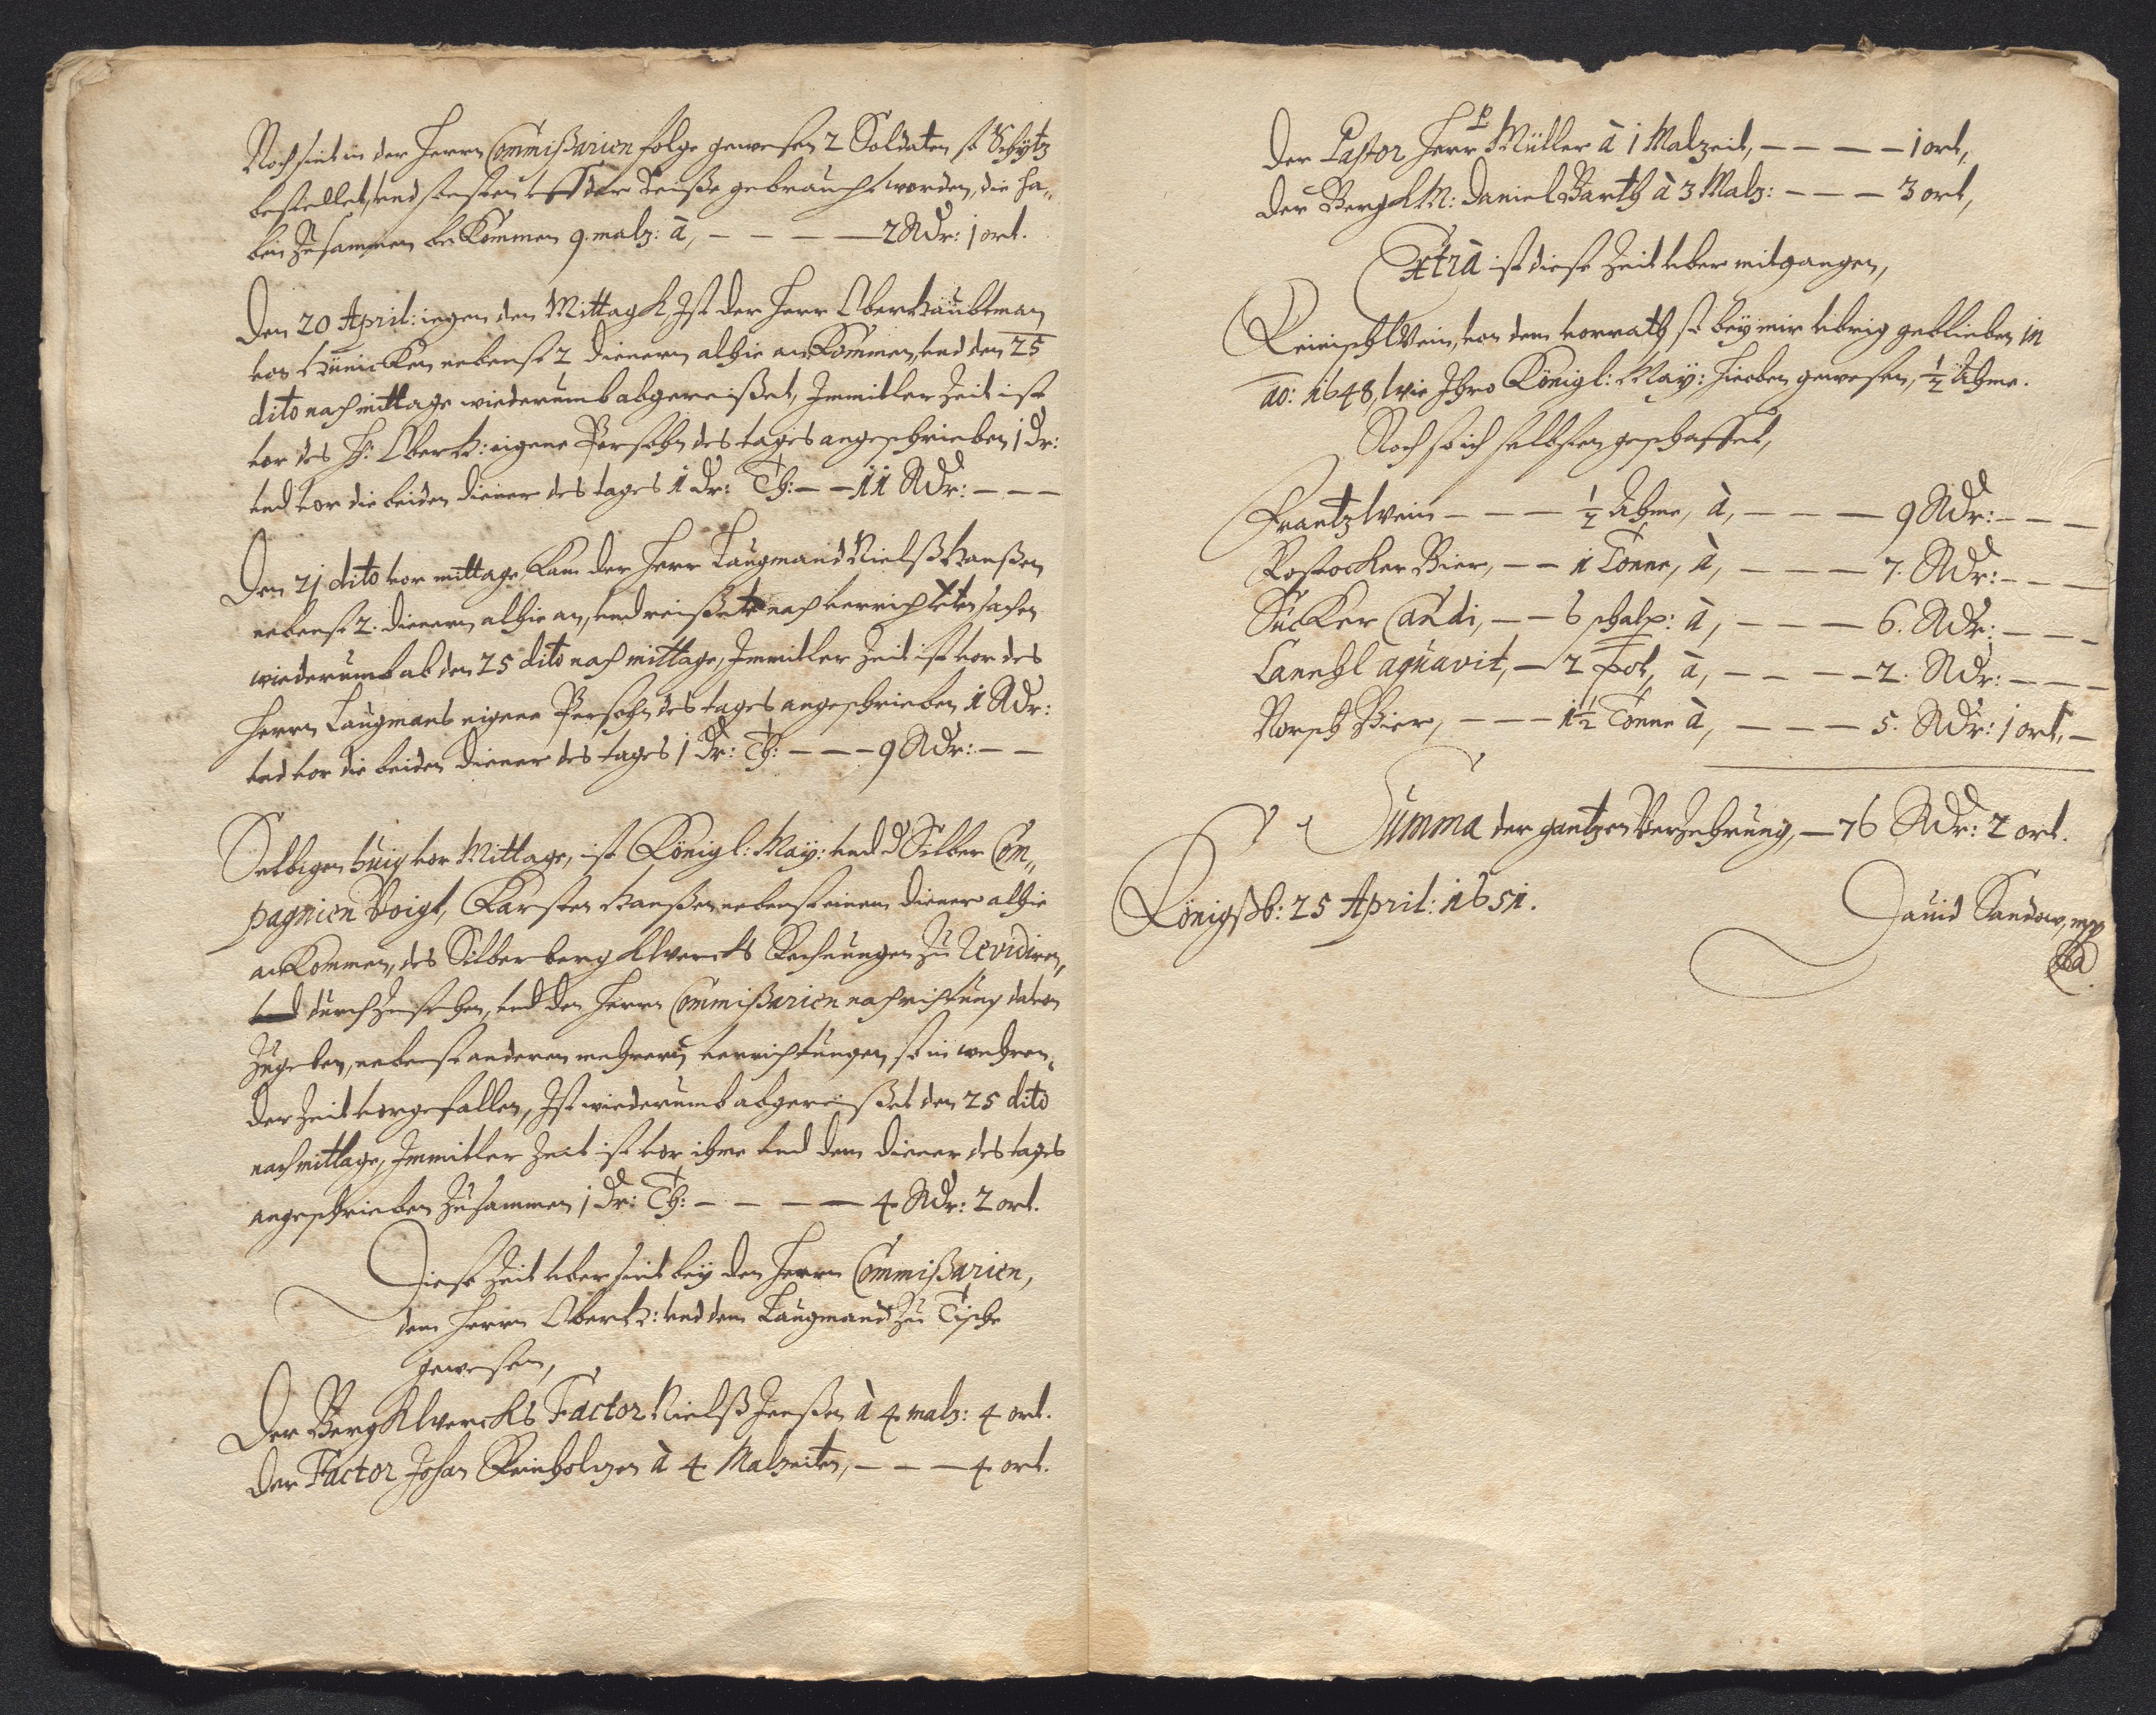 Noch sint in der Herrn Commißarien folge gewesen 2 Soldaten so Schÿtz
bestellet, und sonsten uff der Reiße gebraucht worden, die ha„
ben Zusammen bekommen 9. malz: à, – – – – 2 Rdr: 1 ort.
Den 20 April: iegen den Mittagk, Ist der Herr Oberhäubtman
von Hünicken nebenst 2 Dienern alhie ankommen, und den 25
dito nachmittage wiederumb abgereißet, Immitler Zeit ist
vor des H: Oberh: eigene Persohn des tages angeschrieben 1 Dr:
und vor die beiden Diener des tages 1 Dr: Th: – – 11 Rdr: – – –
Den 21 dito vor mittage, Kam der Herr Laugmand Nielß Hanßen
nebenst 2. Dienern alhie an, und reißete nach verrichteten sachen
wiederumb ab den 25 dito nach mittage, Immitler Zeit ist vor des
Herrn Laugmans eigene Persohn des tages angeschrieben 1 Rdr:
und vor die beiden Diener des tages 1 Dr: Th: – – – 9 Rdr: – –
Selbigen vor Mittage, ist Königl: Maÿ: und d Silber Com„
pagnien Voigt, Karsten Hanßen nebenst einem Diener alhie
ankommen, des Silberbergkwercks Rechnungen Zu Revidiren,
und durchzusehen, und den Herrn Commißarien nachrichtung davon
Zugeben, nebenst anderen mehreren verrichtungen, so in wehren„
der Zeit vorgefallen, Ist wiederumb abgereißet den 25 dito
nachmittage, Immitler Zeit ist vor ihme und dem Diener des tages
angeschrieben Zusammen 1 Dr: Th: – – – – 4 Rdr: 2 ort.
Diese Zeit über sint beÿ den Herrn Commißarien,
dem Herrn Oberh: und dem Laugmand Zu Tische
gewesen,
Der Bergkwercks Factor Nielß Jenßen à 4 malz: 4 ort.
Der Factor Johan Reinholzen à 4 Malzeiten, – – – 4 ort.
Der Pastor Herr Müller à 1 Malzeit, – – – – 1 ort,
Der BergkM: Daniel Barth à 3 Malz: – – – 3 ort,
Extra ist diese Zeit über mitgangen,
Reinisch Wein, von dem vorrath so beÿ mir übrig geblieben in
ao: 1648, wie Ihro Königl: Maÿ: hieoben gewesen, ½ Ahme.
Noch so ich selbsten geschaffet,
Frantz Wein – – – ½ Ahme, à, – – – 9 Rdr: – – –
Rostocker Bier, – – 1 Tonne, à, – – – 7. Rdr: – – –
Sucker Candi, – – 6 à, – – – 6. Rdr: – – –
Canehl aquavit, – 2 Pot, à, – – – – 2. Rdr: – – –
Norsch Bier, – – – 1½ Tonne à, – – – 5. Rdr: 1 ort, –
Summa der gantzen Verzehrung, – 76 Rdr: 2 ort.
Königßb: 25 April: 1651.
David Sandow, mpp